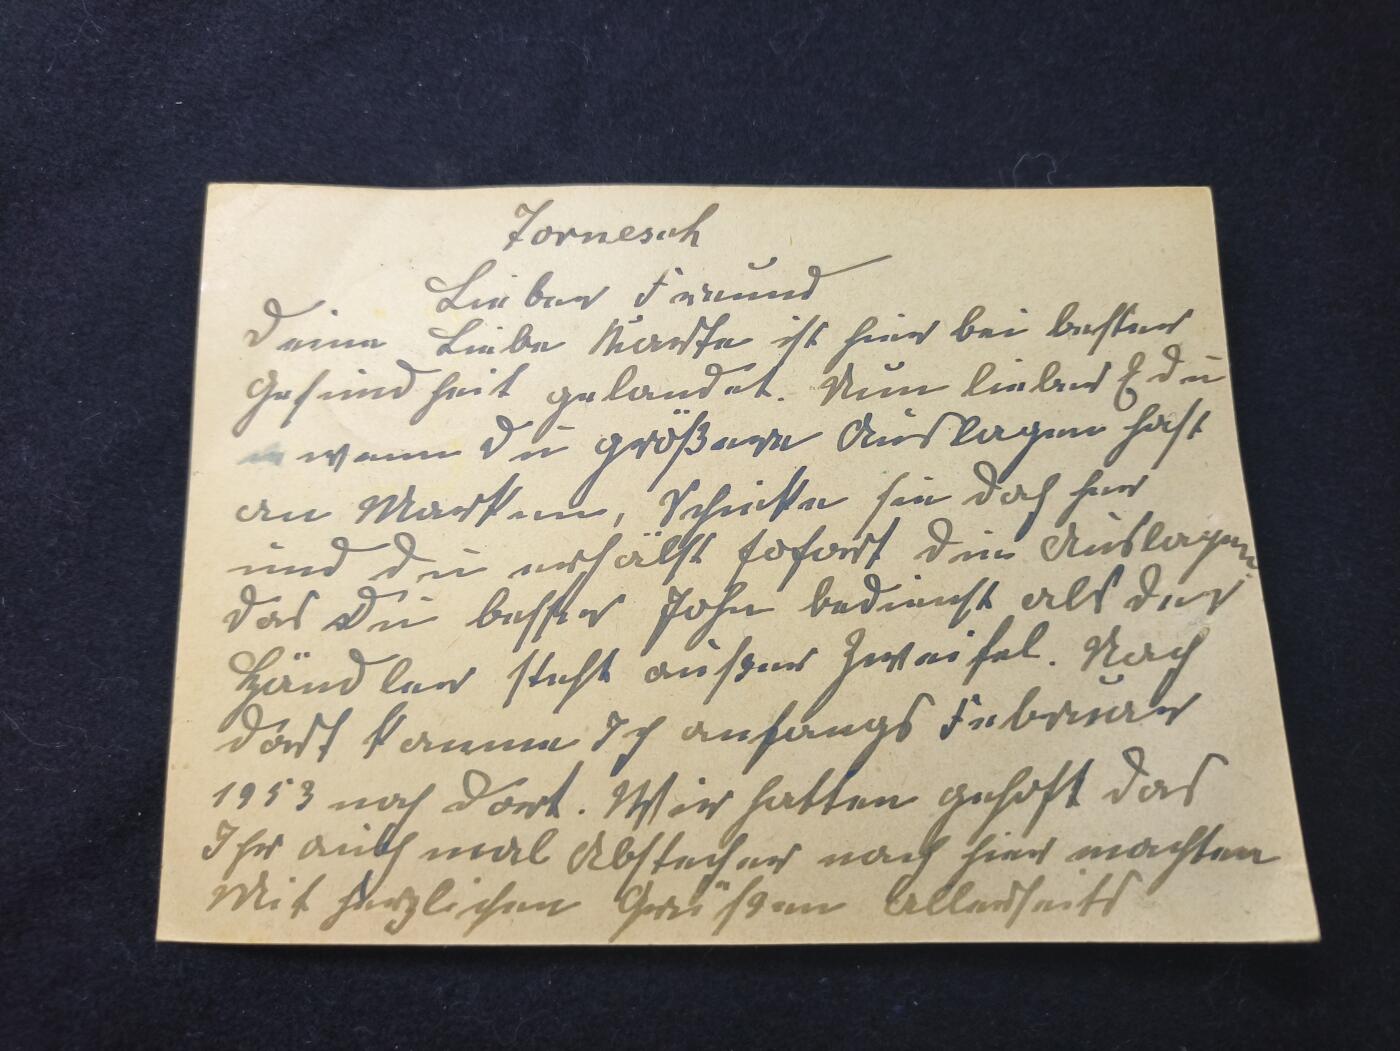 Tornesch
Lieber Freund
Deine Liebe Karte ist hier bei bester
Gesundheit gelandet. Nun lieber Edu
wenn Du größere Auslagen hast
an Marken, Schicke sie doch her
und Du erhälst sofort die Auslagen
das Du besser John bedienst als der
Händler steht außer Zweifel. Nach
dort komme Ich anfangs Februar
1953 nach dort. Wir hatten gehoft das
Ihr auch mal Abstecher nach hier machten
Mit herzlichen Grüßen Allerseits